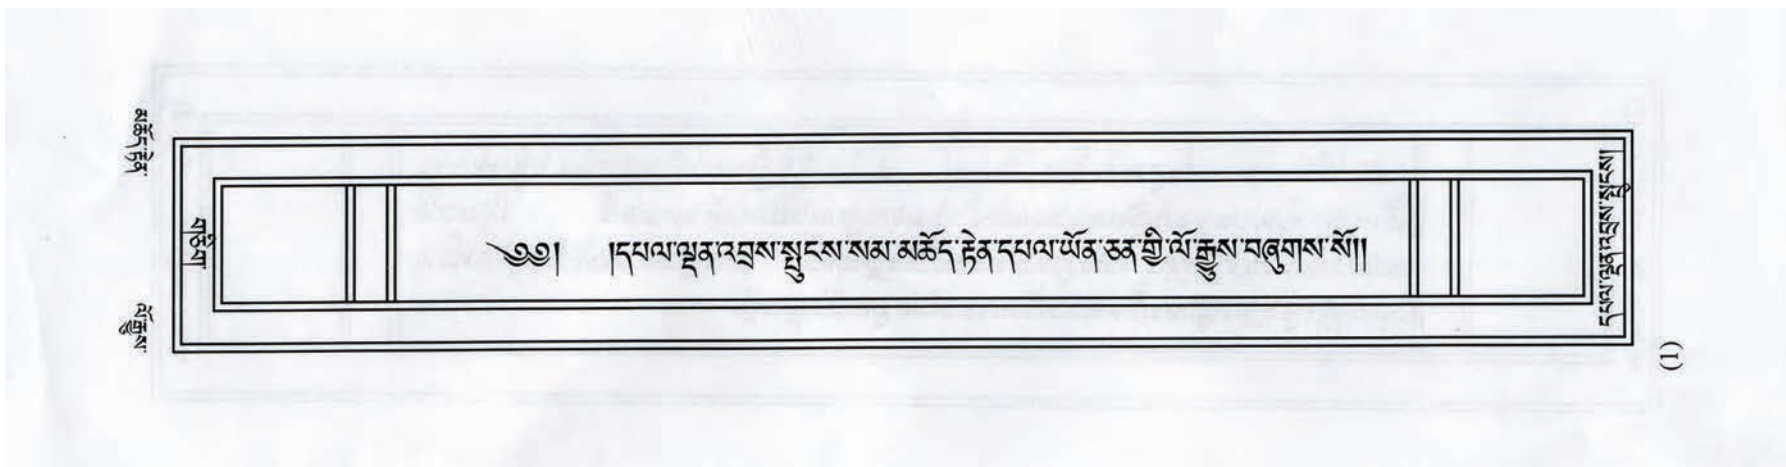 མཆོད་རྟེན་
ལོ་རྒྱུས་
གཅིག
༄༅། །དཔལ་ལྡན་འབྲས་སྤུངས་སམ་མཆོད་རྟེན་དཔལ་ཡོན་ཅན་གྱི་ལོ་རྒྱུས་བཞུགས་སོ།།
དཔལ་ལྡན་འབྲས་སྤུངས།
(1)